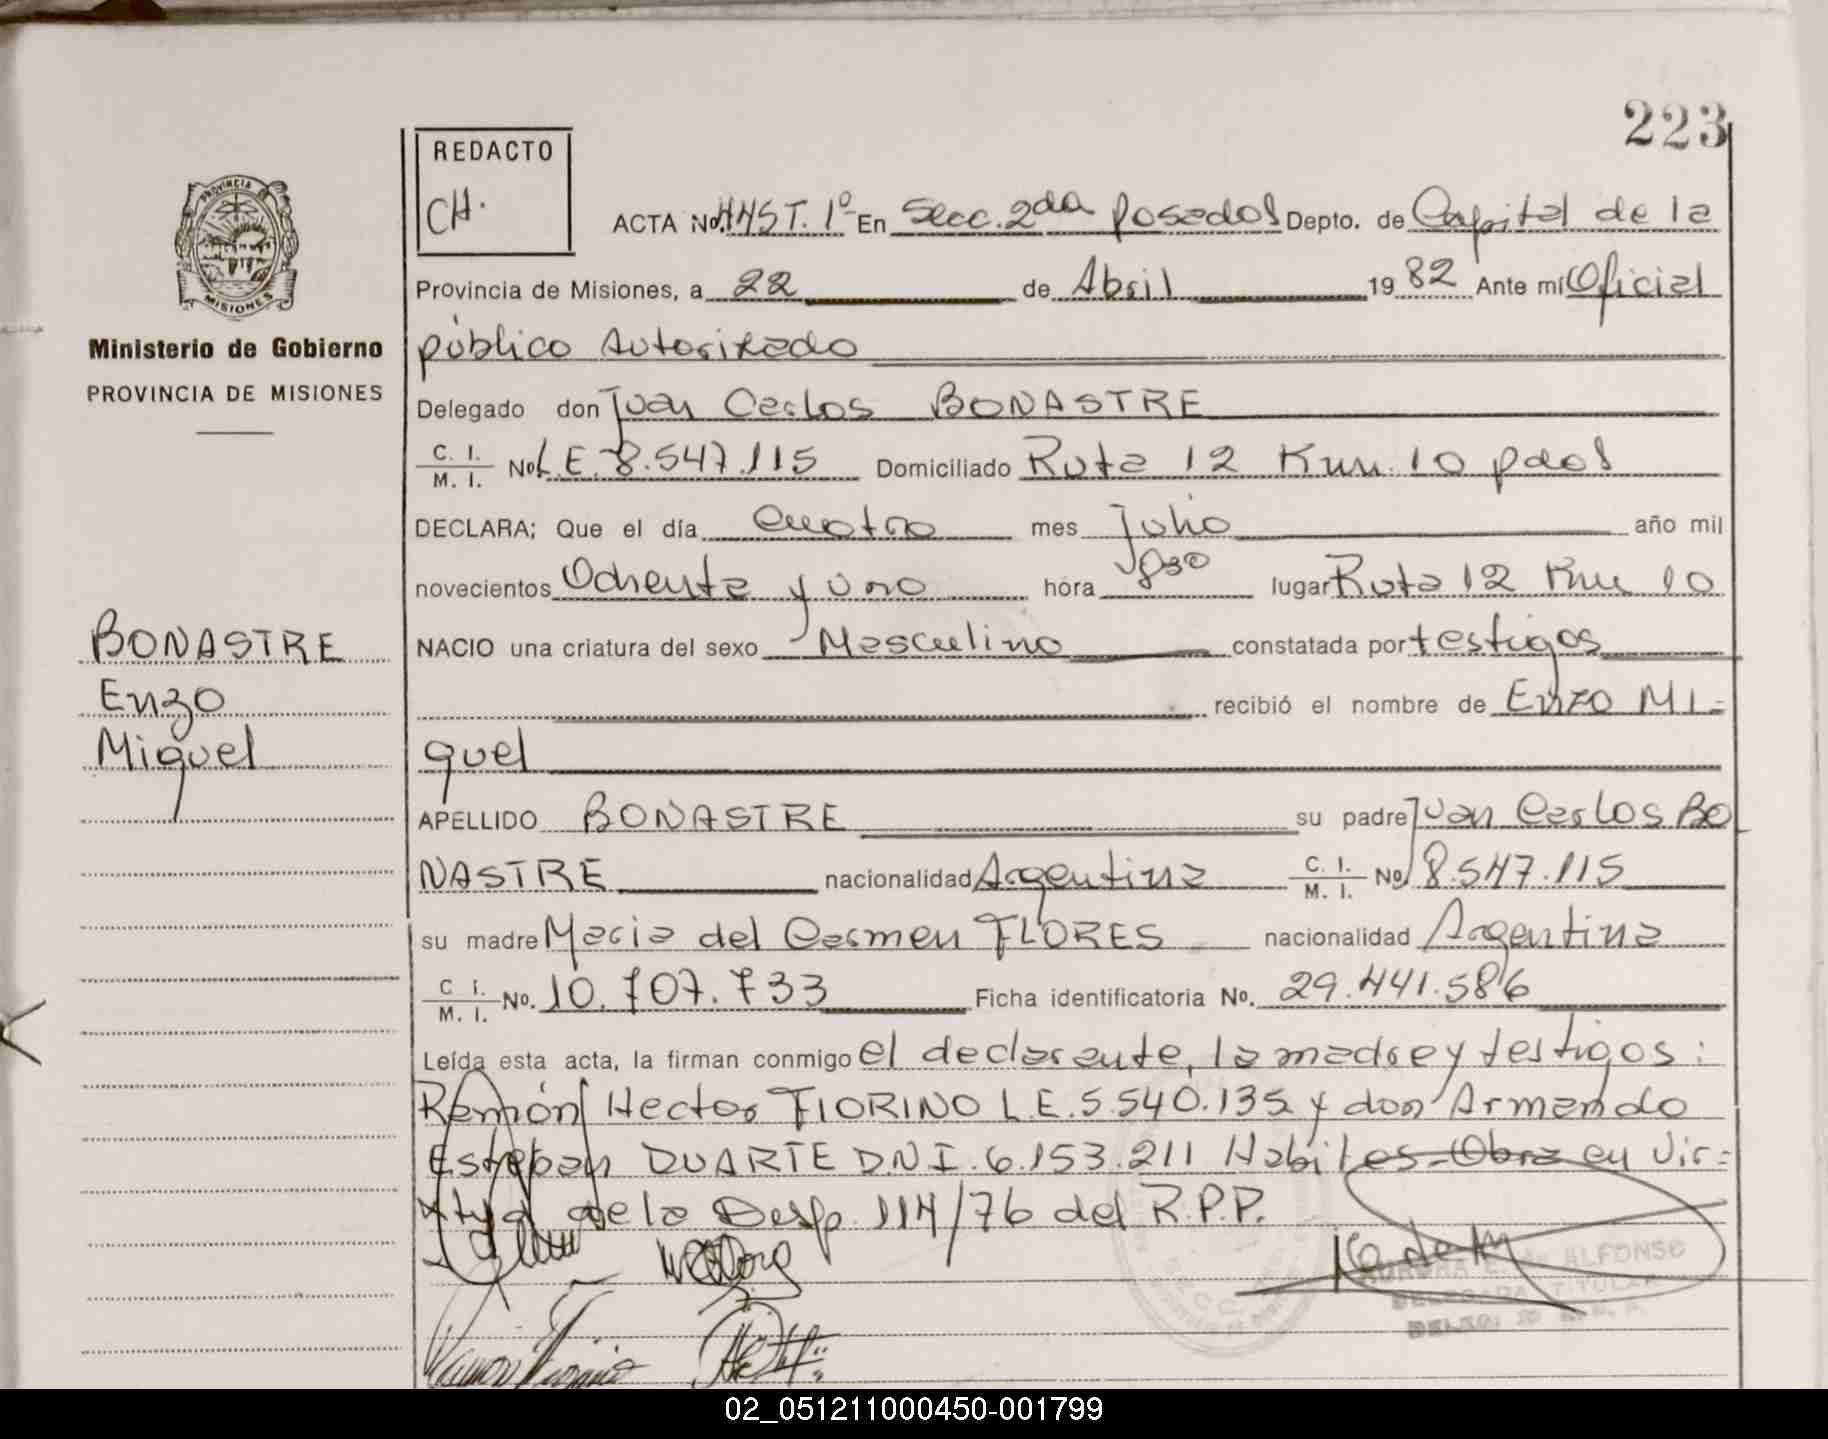 223
REDACTO
CH.
ACTA No. 445 T. 1º En Secc. 2da posadas Depto. de Capital de la
Provincia de Misiones, a 22 de Abril 1982 Ante mí Oficial
público Autorizado
Delegado don Juan Carlos BONASTRE
C. I.
M. I. No L.E. 8.547.115 Domiciliado Ruta 12 Km. 10 pdas
DECLARA; Que el día cuatro mes Julio año mil
novecientos Ochenta y uno hora 830 lugar Ruta 12 Km 10
NACIO una criatura del sexo Masculino constatada por testigos
recibió el nombre de Enzo Mi=
guel
APELLIDO BONASTRE su padre Juan Carlos BO
NASTRE nacionalidad Argentina C. I.
M. I. No 8.547.115
su madre Maria del Carmen FLORES nacionalidad Argentina
C I.
M. I. No. 10.707.733 Ficha identificatoria No. 29.441.586
Leída esta acta, la firman conmigo el declarante, la madre y testigos:
Ramón Hector FIORINO L.E. 5.540.135 y don Armando
Esteban DUARTE D.N.I. 6.153.211 Habiles - Obra en vir=
tud de la Desp. 114/76 del R.P.P.
ALFONSO
TITULAR
PROVINCIA DE
MISIONES
Ministerio de Gobierno
PROVINCIA DE MISIONES
BONASTRE
Enzo
Miguel
02_051211000450-001799